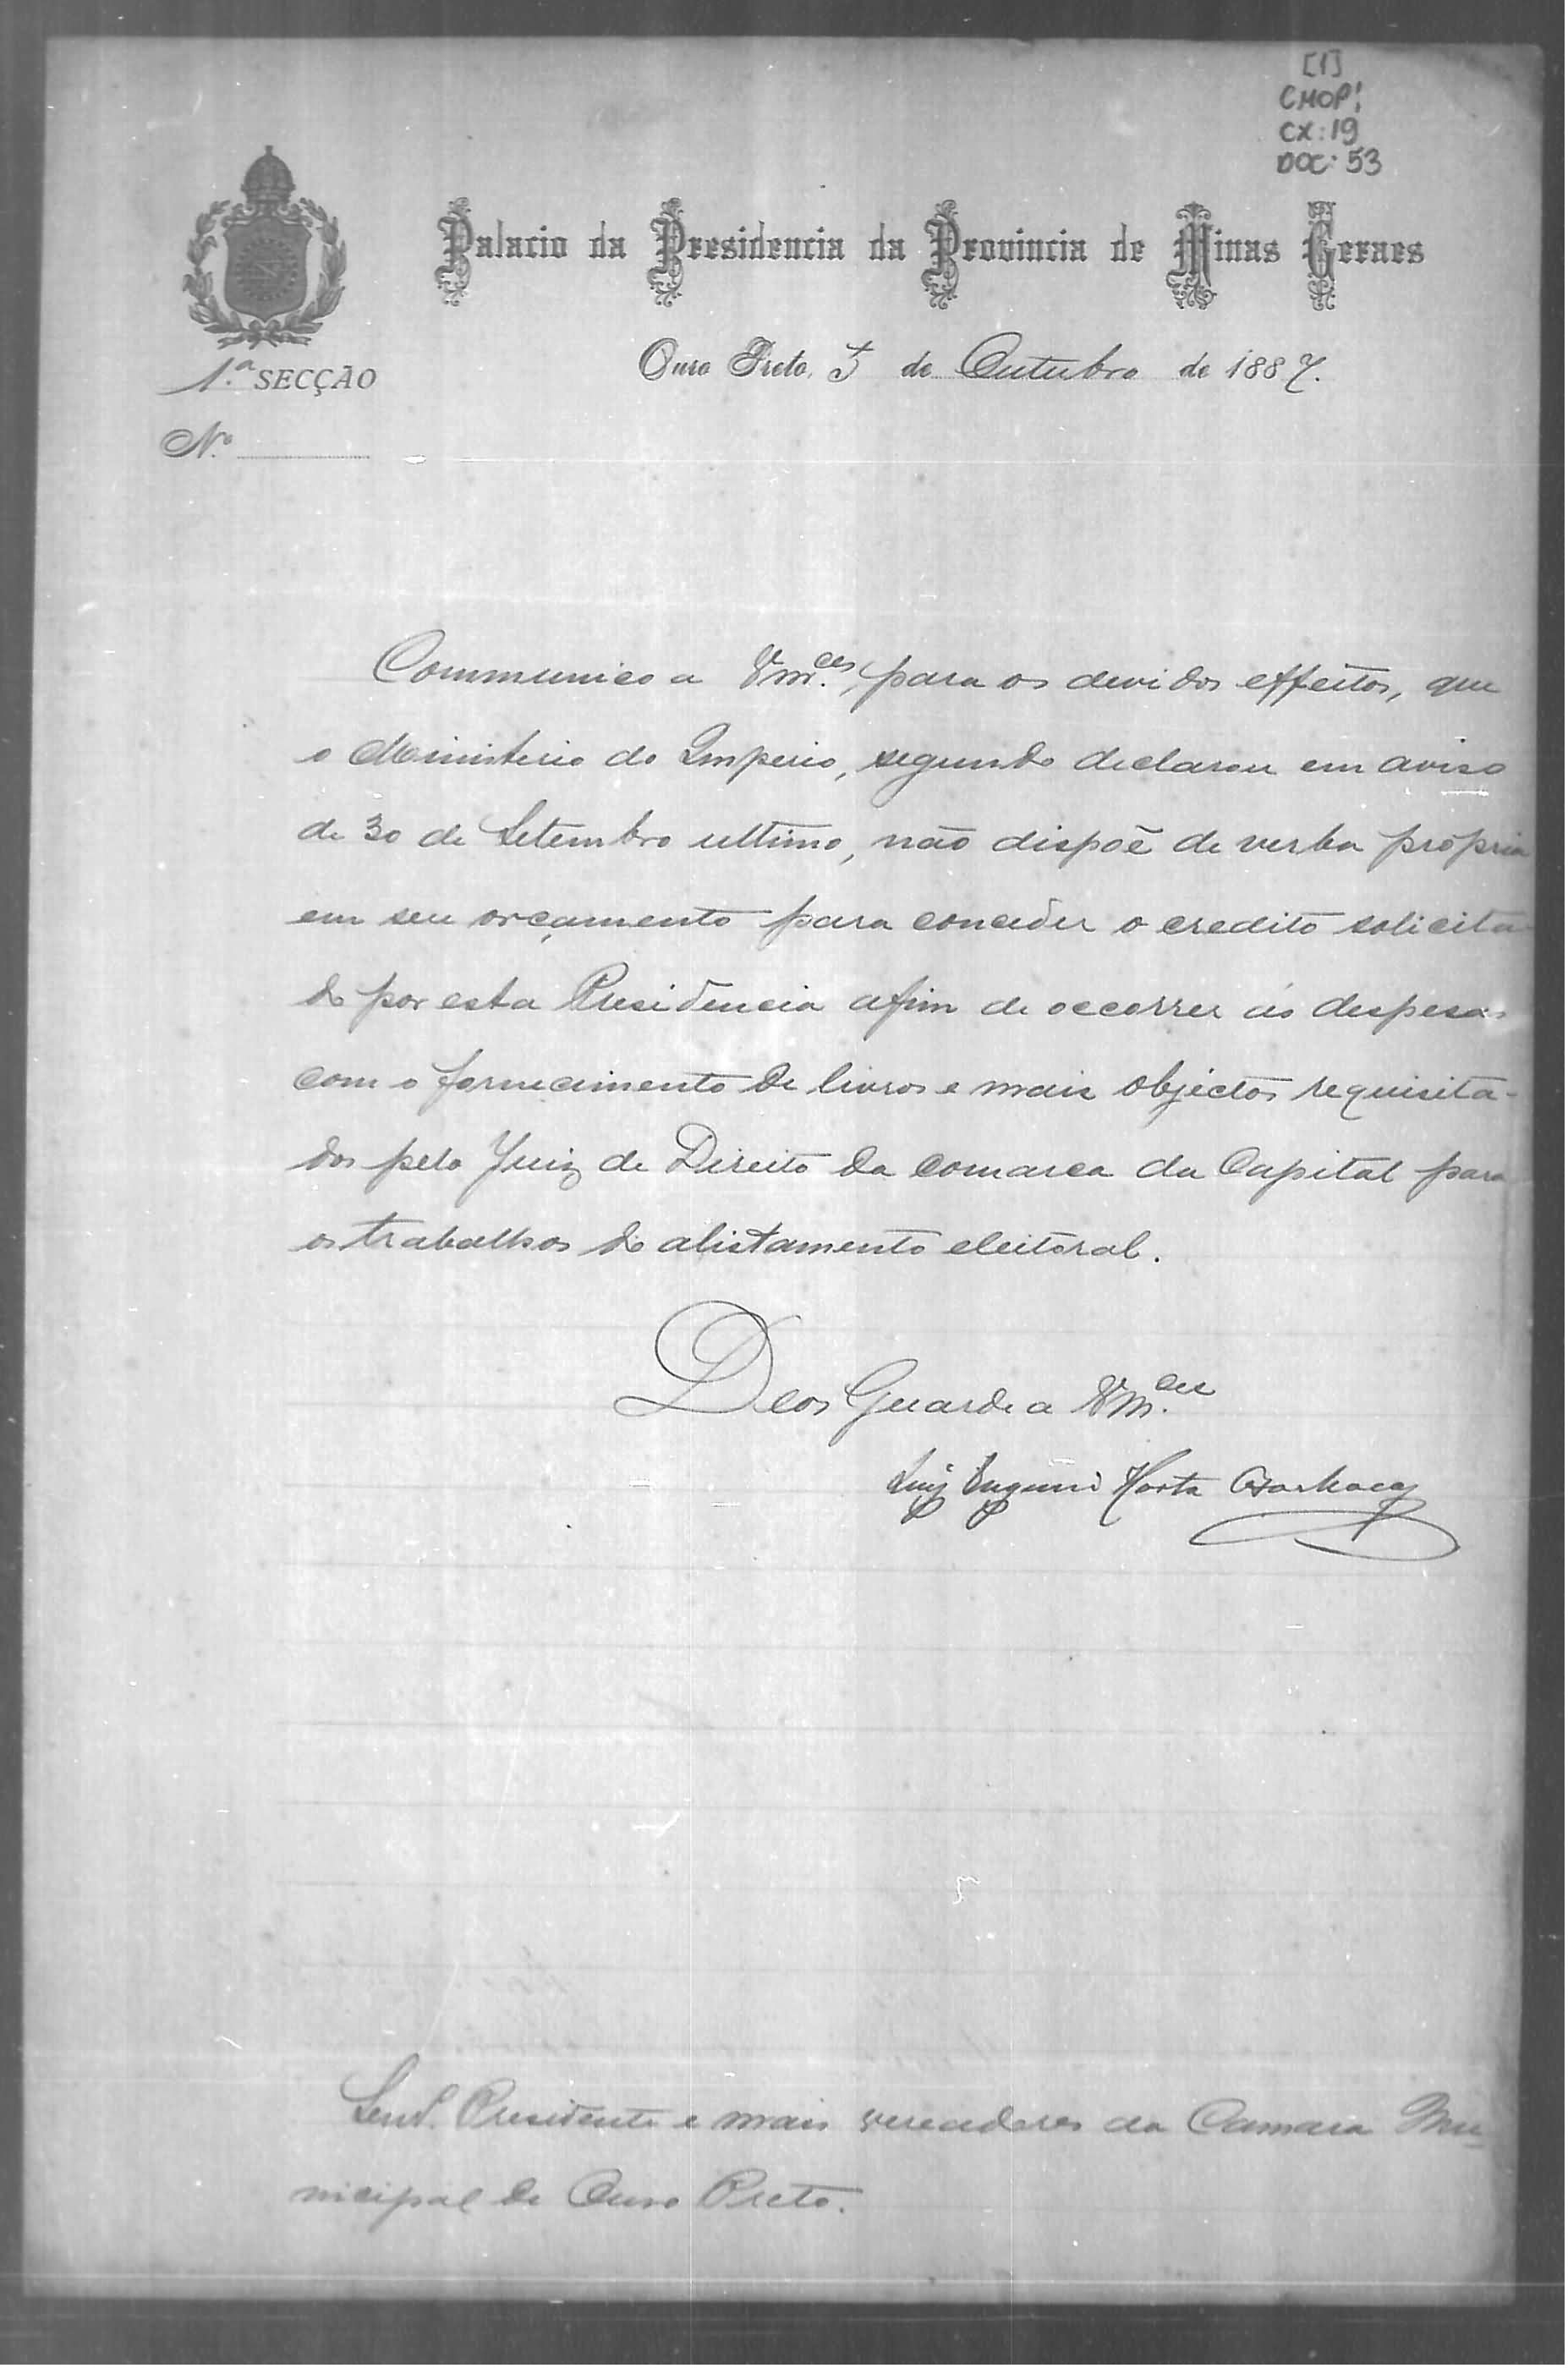 [1]
CMOP!
CX: 19
DOC: 53
Palacio da Presidencia da Provincia de Minas Geraes
Ouro Preto, 5 de Outubro de 1887.
1.ª SECÇÃO
Nº
Communico a Vm.ces, para os devidos effeitos, que
o Ministerio do Imperio, segundo declarou em aviso
de 30 de Setembro ultimo, não dispõe de verba propria
em seu orçamento para conceder o credito solicita-
do por esta Presidencia afim de occorrer ás despesas
com o fornecimento de livros e mais objectos requisita-
dos pelo Juiz de Direito da comarca da Capital para
os trabalhos do alistamento eleitoral.
Deos Guarde a Vm.ces
Luiz Eugenio Horta Barbosa
Senr. Presidente e mais vereadores da Camara Mu-
nicipal de Ouro Preto.